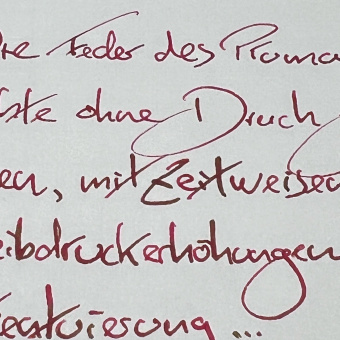 Die Feder des Proma
ste ohne Druck
en, mit Zeitweisen
eibdruckerhöhungen
ierung ...